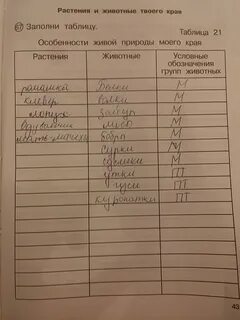 Растения и животные твоего края
67 Заполни таблицу.
Таблица 21
Особенности живой природы моего края
Растения Животные Условные обозначения групп животных
ромашка Белки М
клевер Волки М
лопух Зайцы М
одуванчик М
мать-мачеха Бобры М
Сурки М
Суслики М
утки ПТ
гуси ПТ
куропатки ПТ
43